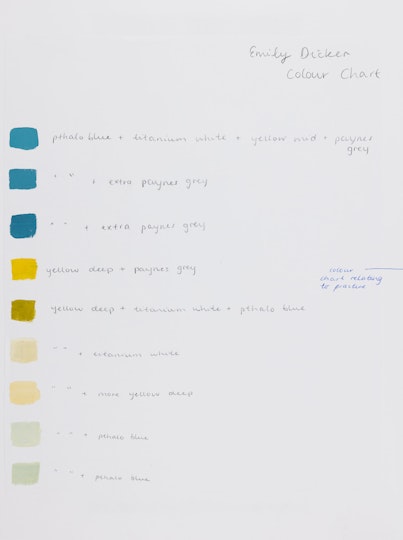 Emily Dicker
Colour Chart
pthalo blue + titanium white + yellow mid + paynes
grey
" " + extra paynes grey
" " + extra paynes grey
yellow deep + paynes grey
colour
chart relating
to practice
yellow deep + titanium white + pthalo blue
" " + titanium white
" " + more yellow deep
" " + pthalo blue
" " + pthalo blue